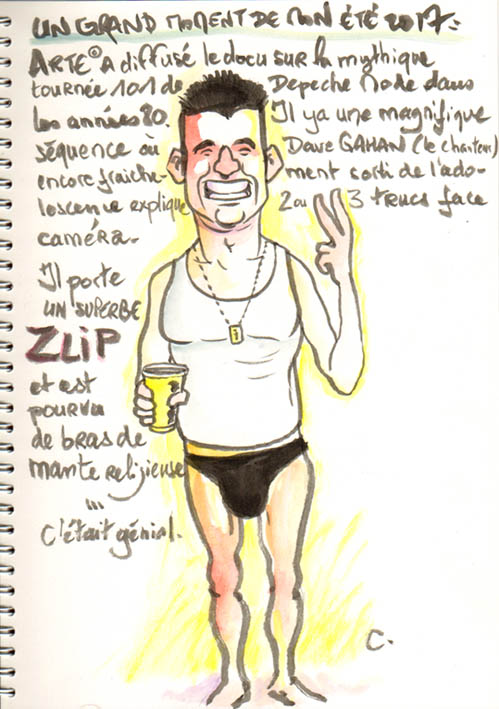 UN GRAND MOMENT DE MON ÉTÉ 2017:
ARTE© A diffusé le docu sur la mythique
tournée 101 de Depeche Mode dans
les années 80. Il y a une magnifique
séquence où Dave GAHAN (le chanteur)
encore fraîchement sorti de l'ado-
lescence explique 2 ou 3 trucs face
caméra.
Il porte
UN SUPERBE
ZLIP
et est
pourvu
de bras de
mante religieuse
...
C'était génial.
C.